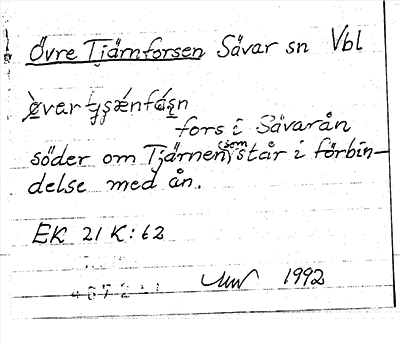 Övre Tjärnforsen Sävar sn Vbl
fors i Sävarån
söder om Tjärnen (som står i förbin-
delse med ån.
EK 21 K:62
1992